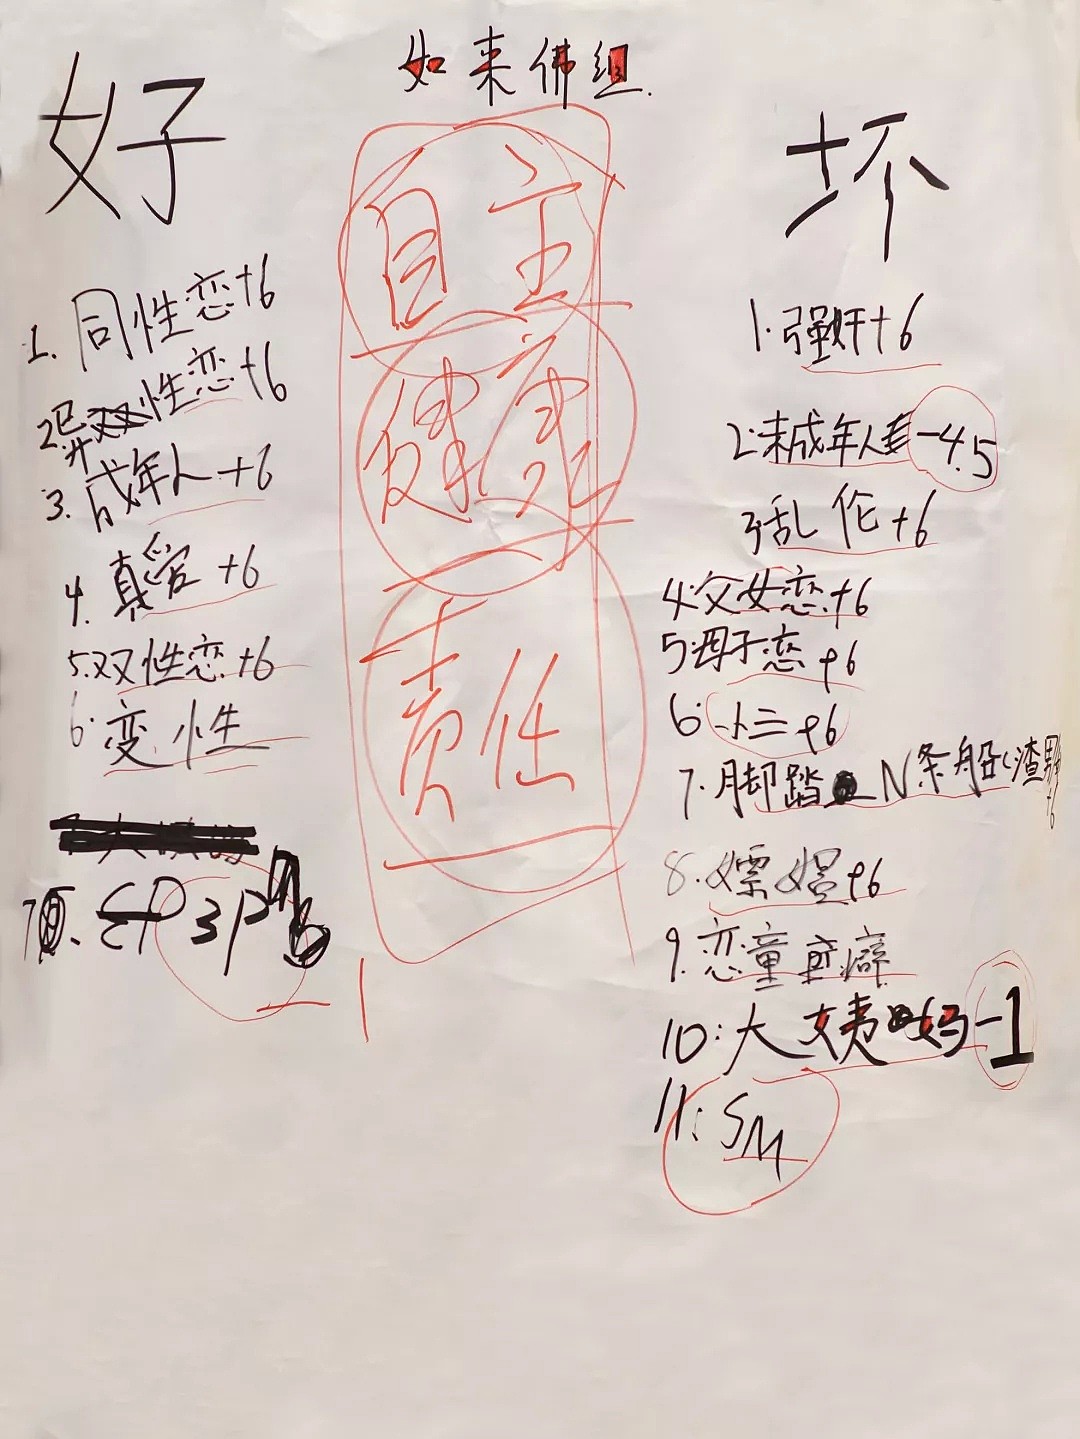 如来佛组.
好
1. 同性恋+6
2. 异性恋+6
3. 成年人+6
4. 真爱+6
5. 双性恋+6
6. 变性
7. 3P
-1
自主
健康
责任
坏
1. 强奸+6
2. 未成年人 -4.5
3 乱伦+6
4. 父女恋+6
5. 母子恋+6
6. 小三+6
7. 脚踏N条船(渣男+6
8. 嫖娼+6
9. 恋童 癖
10: 大姨妈-1
11: SM